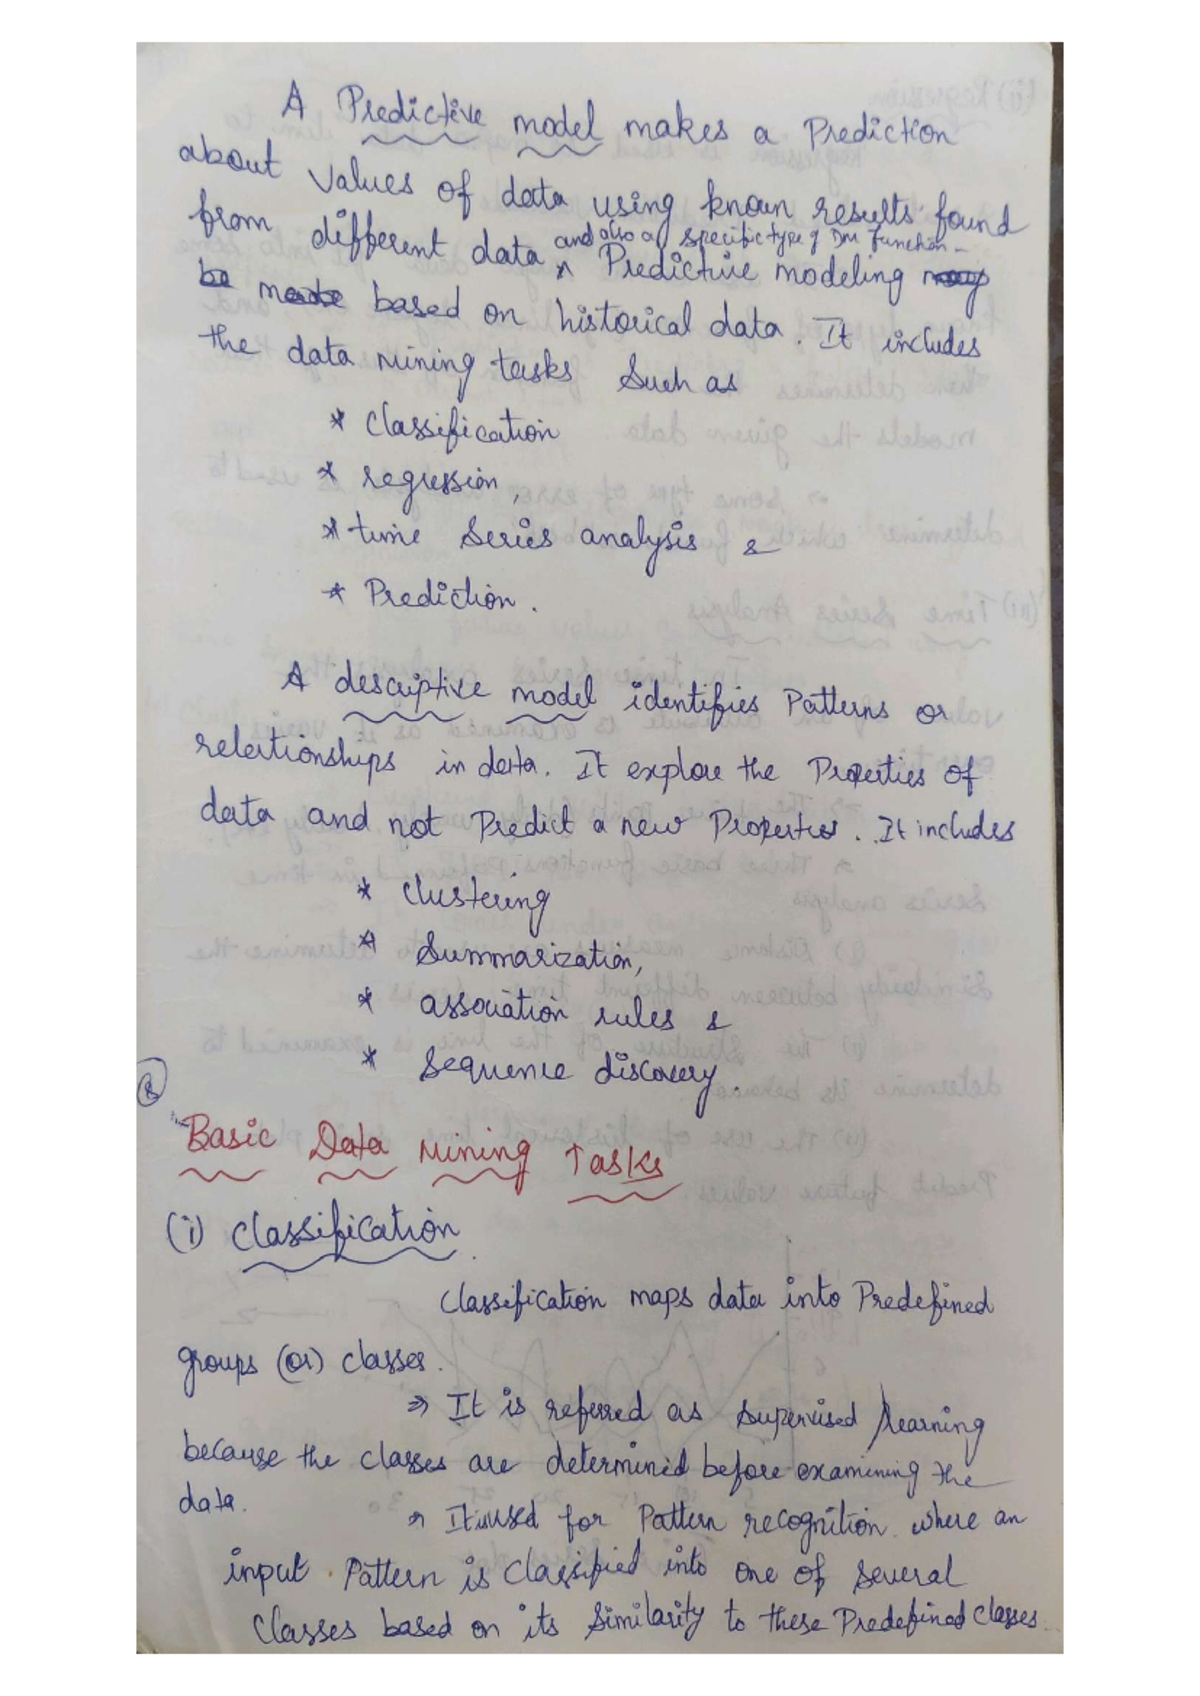 A Predictive model makes a Prediction
about values of data using known results found
from different data and also a specific type of DM function. Predictive modeling may
be made based on historical data. It includes
the data mining tasks Such as
* Classification
* regression,
* time Series analysis &
* Prediction.
A descriptive model identifies Patterns or
relationships in data. It explore the Properties of
data and not Predict a new Properties. It includes
* Clustering
* Summarization,
* association rules &
* Sequence discovery.
8
Basic Data Mining Tasks
(i) Classification
Classification maps data into Predefined
groups (or) classes.
⇒ It is referred as Supervised learning
because the classes are determined before examining the
data.
⇒ It is used for Pattern recognition where an
input Pattern is Classified into one of Several
Classes based on its Similarity to these Predefined Classes.